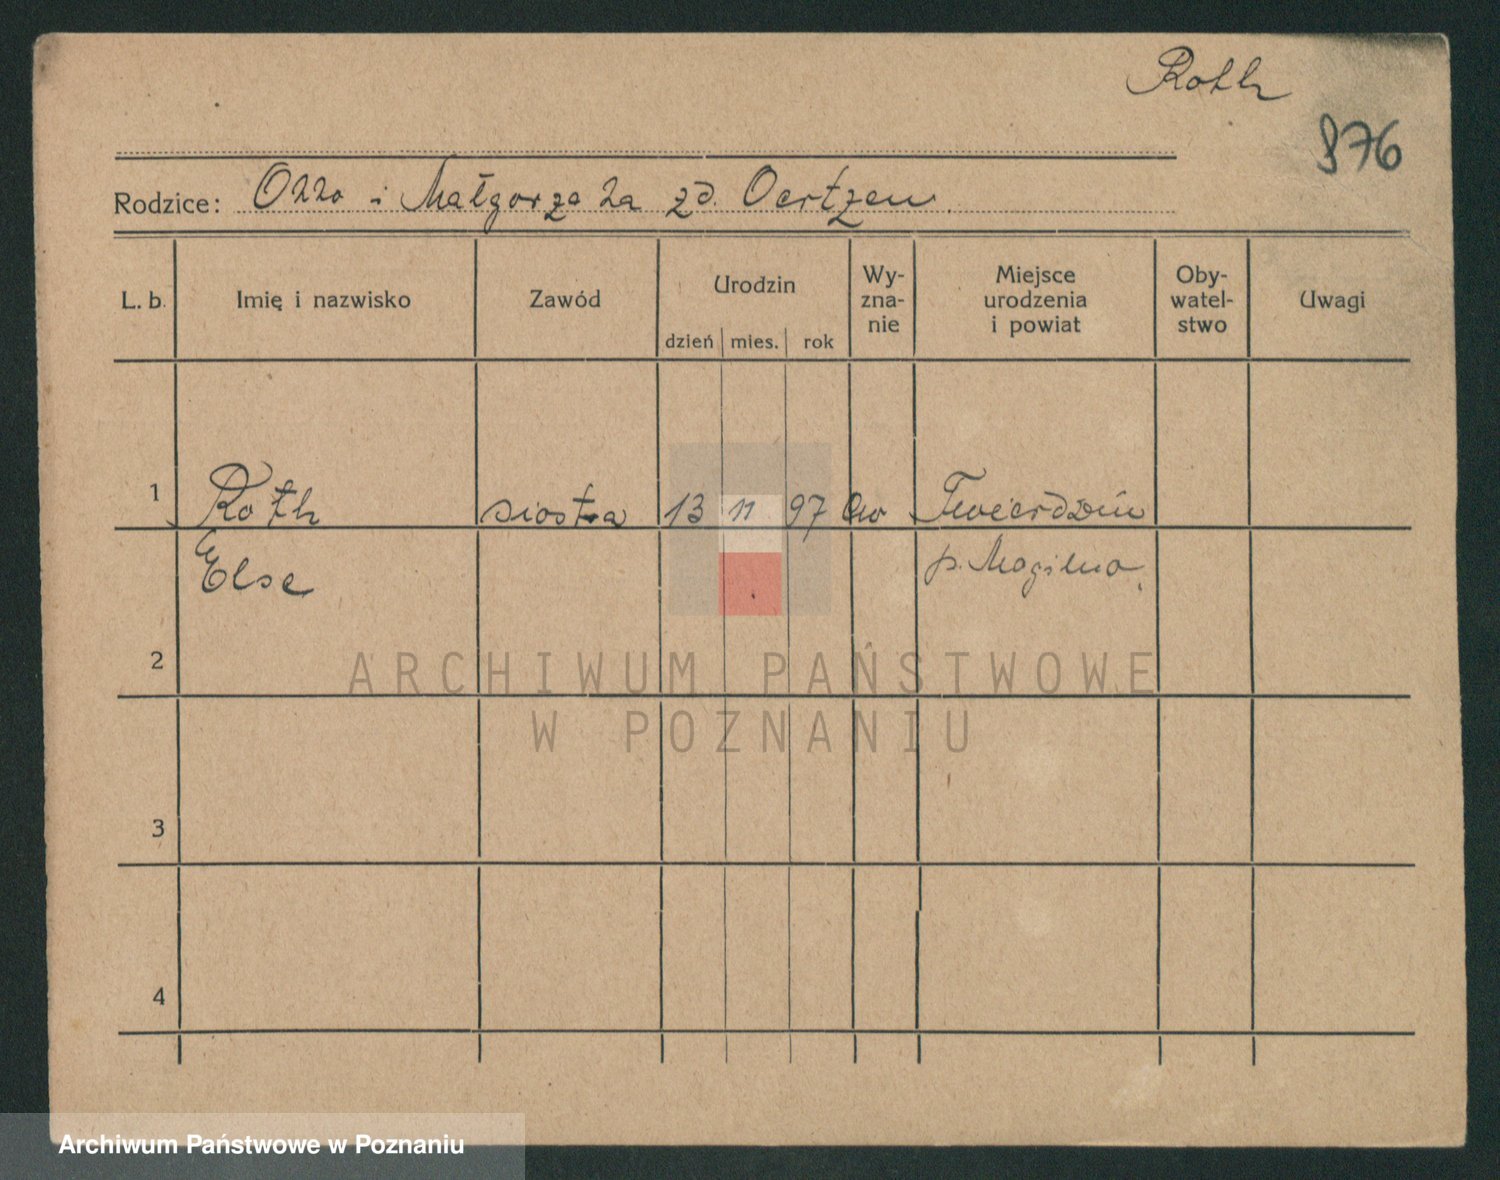 Roth
876
Rodzice: Otto i Małgorzata zd. Oertzen.
L. b. Imię i nazwisko Zawód Urodzin dzień mies. rok Wy-zna-nie Miejsce urodzenia i powiat Oby-watel-stwo Uwagi
1 Roth siostra 13 11 97 ew Twierdzin
Else p. Mogilno.
2
ARCHIWUM PAŃSTWOWE
W POZNANIU
3
4
Archiwum Państwowe w Poznaniu